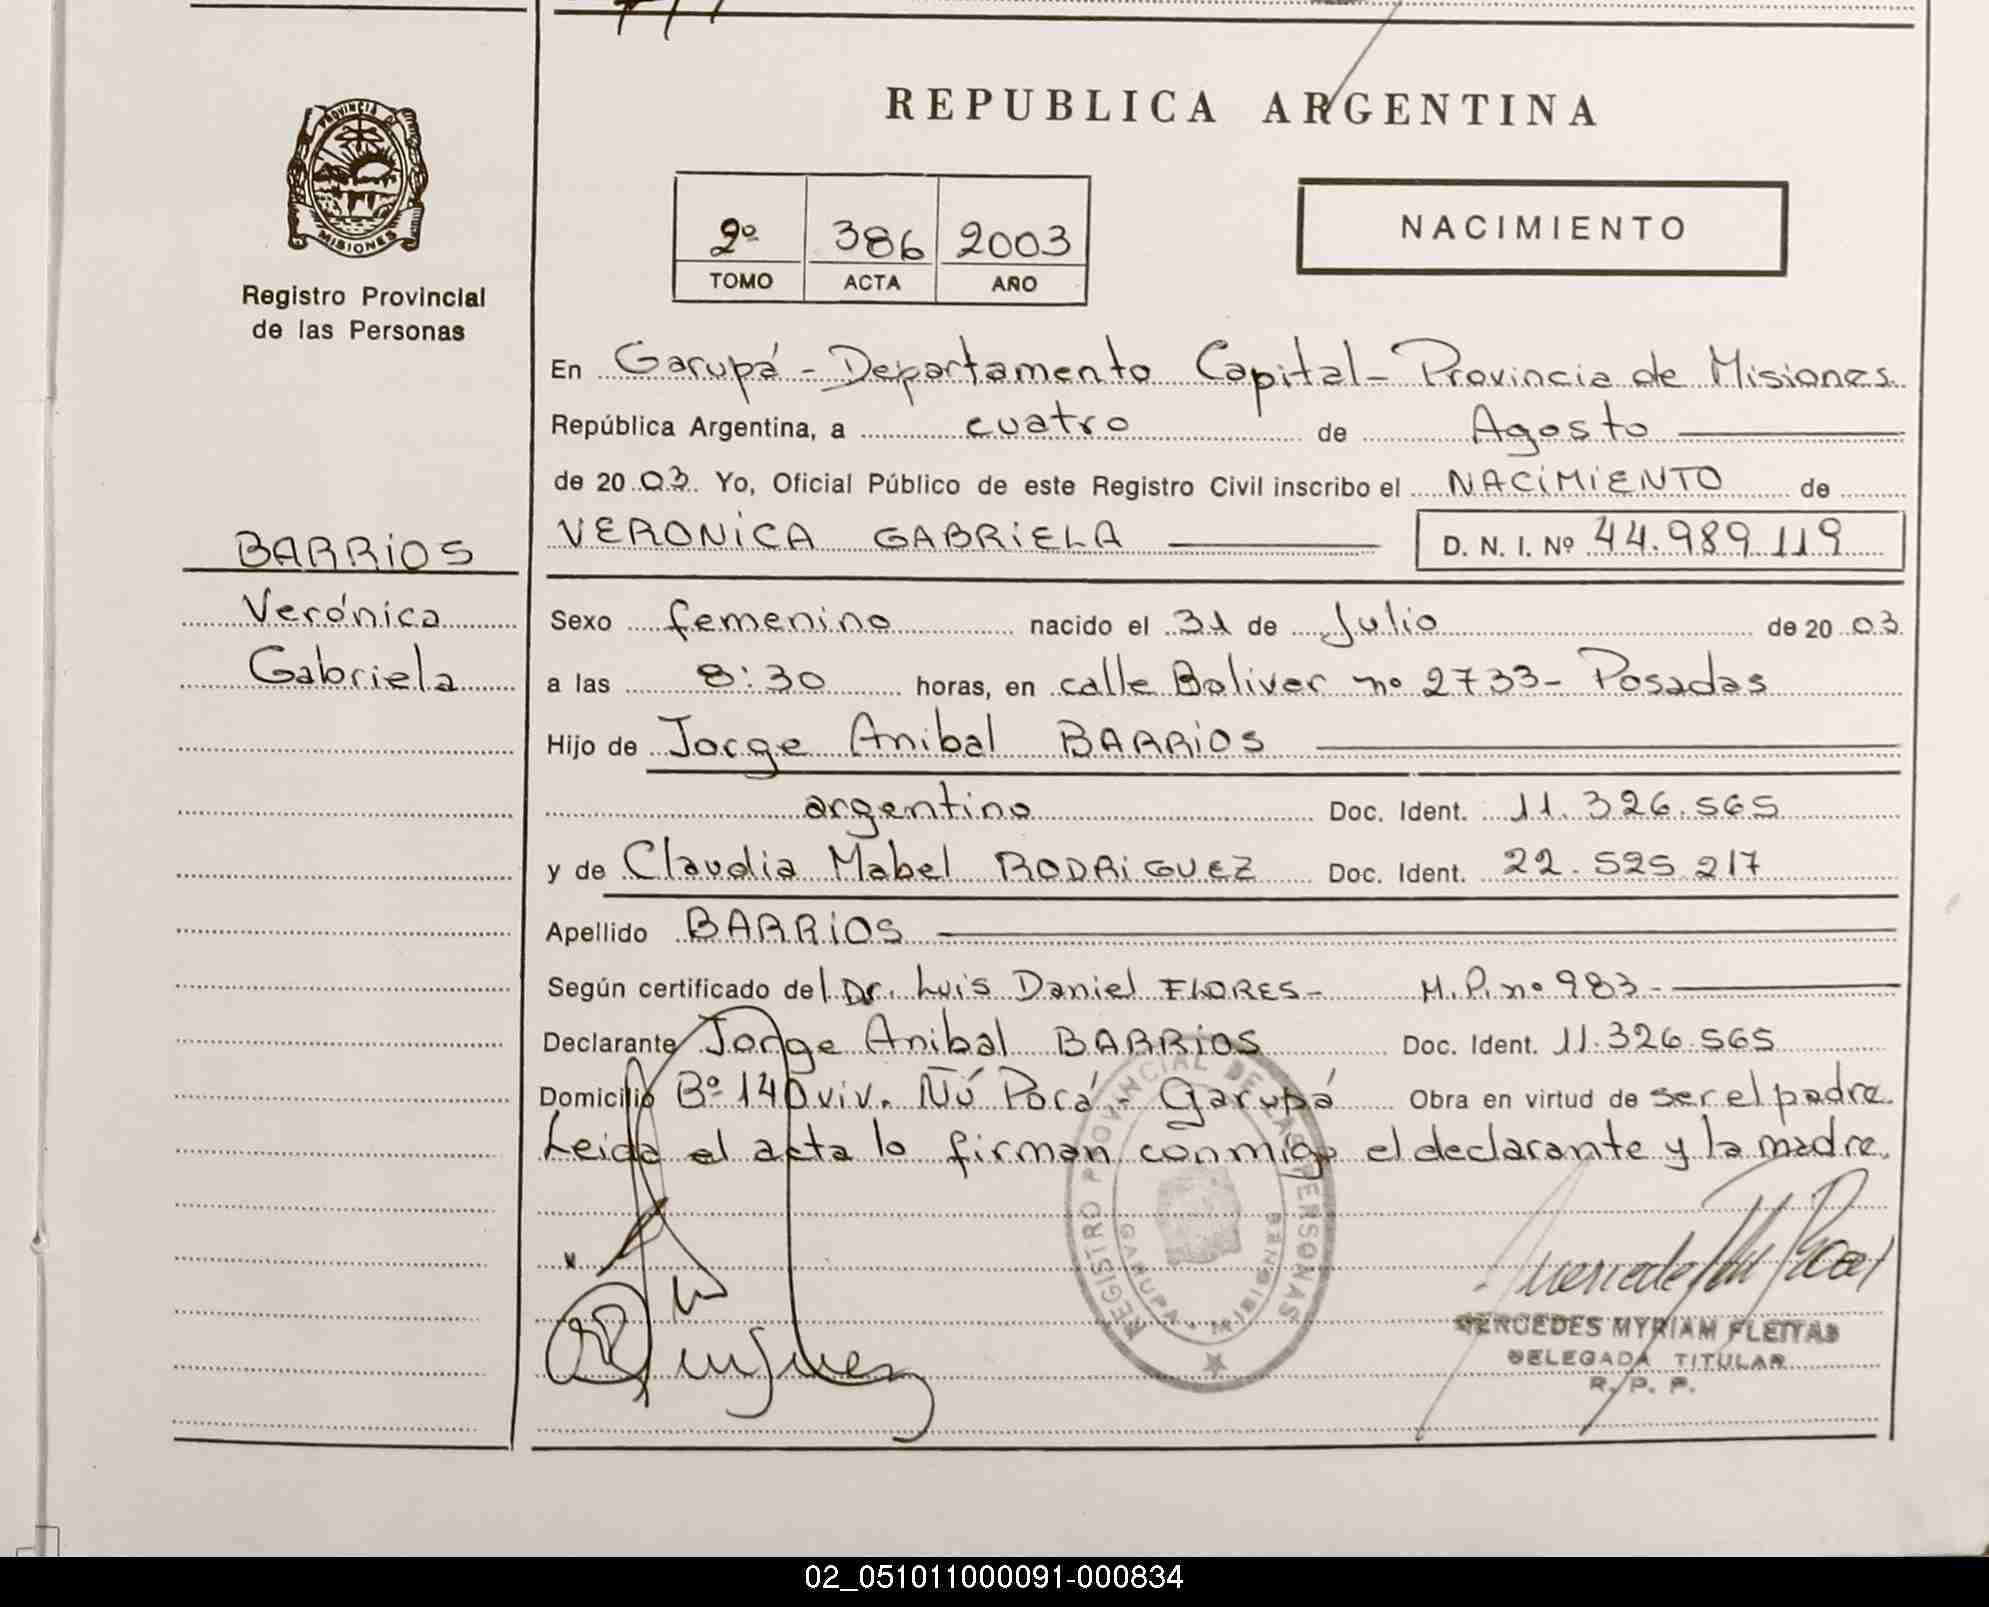 REPUBLICA ARGENTINA
PROVINCIA DE
MISIONES
Registro Provincial
de las Personas
2º 386 2003
TOMO ACTA AÑO
NACIMIENTO
En Garupá - Departamento Capital - Provincia de Misiones
República Argentina, a cuatro de Agosto
de 20 03 Yo, Oficial Público de este Registro Civil inscribo el NACIMIENTO de
BARRIOS
VERONICA GABRIELA D. N. I. Nº 44.989.119
Verónica
Gabriela
Sexo femenino nacido el 31 de Julio de 20 03
a las 8:30 horas, en calle Bolivar nº 2733 - Posadas
Hijo de Jorge Anibal BARRIOS
argentino Doc. Ident. 11.326.565
y de Claudia Mabel RODRIGUEZ Doc. Ident. 22.525.217
Apellido BARRIOS
Según certificado del Dr. Luis Daniel FLORES - M.P. nº 983 -
Declarante Jorge Anibal BARRIOS Doc. Ident. 11.326.565
Domicilio Bº 140 viv. Ñú Porá - Garupá Obra en virtud de ser el padre.
Leida el acta lo firman conmigo el declarante y la madre.
REGISTRO PROVINCIAL DE LAS PERSONAS
GARUPA - MISIONES
MERCEDES MYRIAM FLEITAS
DELEGADA TITULAR
R. P. P.
02_051011000091-000834